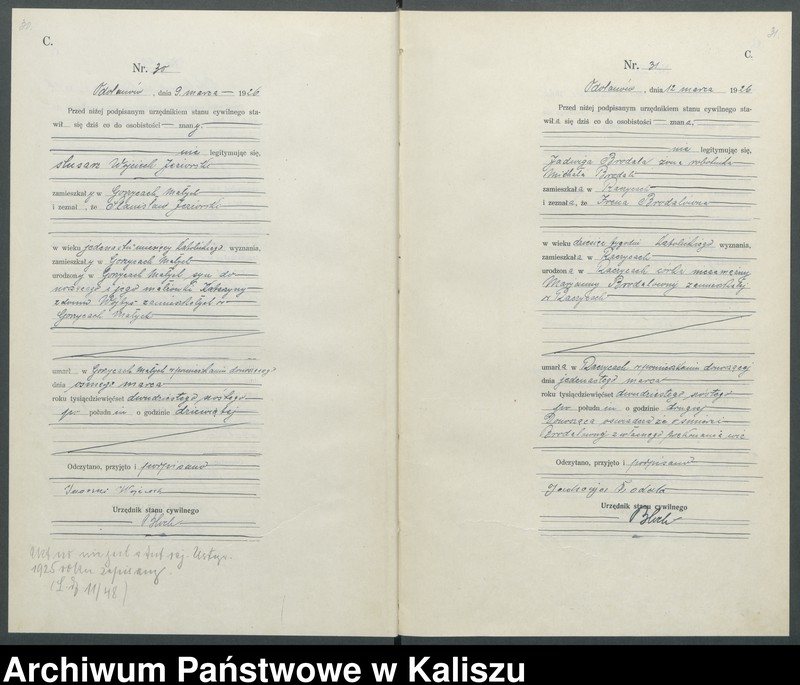 30.
C.
Nr. 30
Odolanów, dnia 9 marca 1926
Przed niżej podpisanym urzędnikiem stanu cywilnego sta-
wił się dziś co do osobistości — znany.
nie legitymując się,
ślusarz Wojciech Jeziorski
zamieszkały w Gorzycach Małych
i zeznał, że Stanisław Jeziorski
w wieku jedenastu miesięcy katolickiego wyznania,
zamieszkały w Gorzycach Małych
urodzony w Gorzycach Małych syn do
i jego małżonki Katarzyny
z domu zamieszkałych w
Gorzycach Małych
umarł w Gorzycach Małych w pomieszkaniu donoszącego
dnia ósmego marca
roku tysiącdziewięćset dwudziestego szóstego
po południu o godzinie dziewiątej
Odczytano, przyjęto i podpisano
Wojciech
Urzędnik stanu cywilnego
Bloch
1925 roku zapisany.
11/48)
31
C.
Nr. 31
Odolanów, dnia 12 marca 1926
Przed niżej podpisanym urzędnikiem stanu cywilnego sta-
wiła się dziś co do osobistości — znana,
nie legitymując się,
Jadwiga Brodala żona robotnika
Michała Brodali
zamieszkała w Raczycach
i zeznała, że Irena Brodalówna
w wieku dziesięć tygodni katolickiego wyznania,
zamieszkała w Raczycach
urodzona w Raczycach córka niezamężnej
Maryanny Brodalówny zamieszkałej
w Raczycach
umarła w Raczycach w pomieszkaniu donoszącej
dnia jedenastego marca
roku tysiącdziewięćset dwudziestego szóstego
po południu o godzinie drugiej
Donosząca oświadcza o śmierci
Brodalówny z własnego przekonania wie
Odczytano, przyjęto i podpisano
Brodala
Urzędnik stanu cywilnego
Bloch
Archiwum Państwowe w Kaliszu